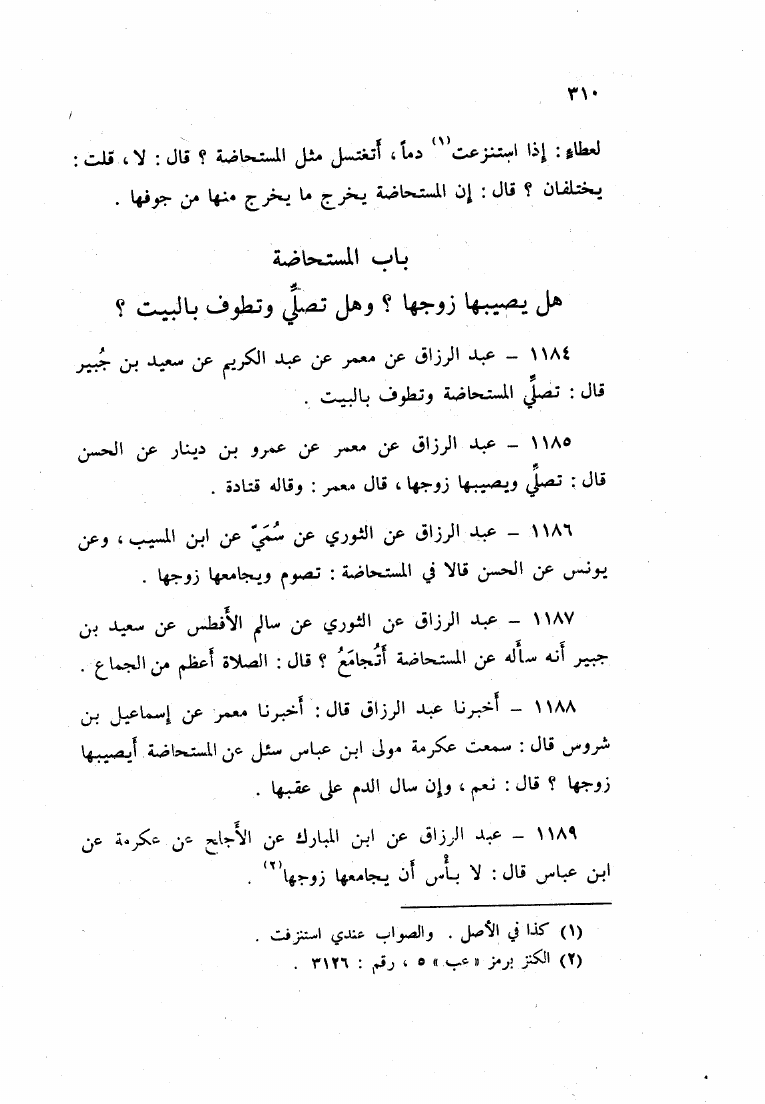 ٣١٠
لعطاءٍ : إذا استنزعت(١) دماً ، أَتغتسل مثل المستحاضة ؟ قال : لا ، قلت :
يختلفان ؟ قال : إن المستحاضة يخرج ما يخرج منها من جوفها .
باب المستحاضة
هل يصيبها زوجها ؟ وهل تصلِّي وتطوف بالبيت ؟
١١٨٤ – عبد الرزاق عن معمر عن عبد الكريم عن سعيد بن جُبير
قال : تصلِّي المستحاضة وتطوف بالبيت .
١١٨٥ – عبد الرزاق عن معمر عن عمرو بن دينار عن الحسن
قال : تصلِّي ويصيبها زوجها ، قال معمر : وقاله قتادة .
١١٨٦ – عبد الرزاق عن الثوري عن سُمَيّ عن ابن المسيب ، وعن
يونس عن الحسن قالا في المستحاضة : تصوم ويجامعها زوجها .
١١٨٧ – عبد الرزاق عن الثوري عن سالم الأَفطس عن سعيد بن
جبير أَنه سأَله عن المستحاضة أَتُجامَعُ ؟ قال : الصلاة أَعظم من الجماع .
١١٨٨ – أَخبرنا عبد الرزاق قال : أَخبرنا معمر عن إسماعيل بن
شروس قال : سمعت عكرمة مولى ابن عباس سئل عن المستحاضة أَيصيبها
زوجها ؟ قال : نعم ، وإن سال الدم على عقبها .
١١٨٩ – عبد الرزاق عن ابن المبارك عن الأَجلح عن عكرمة عن
ابن عباس قال : لا بأْس أَن يجامعها زوجها(٢) .
(١) كذا في الأصل . والصواب عندي استنزفت .
(٢) الكنز برمز « عب » ٥ ، رقم : ٣١٢٦ .